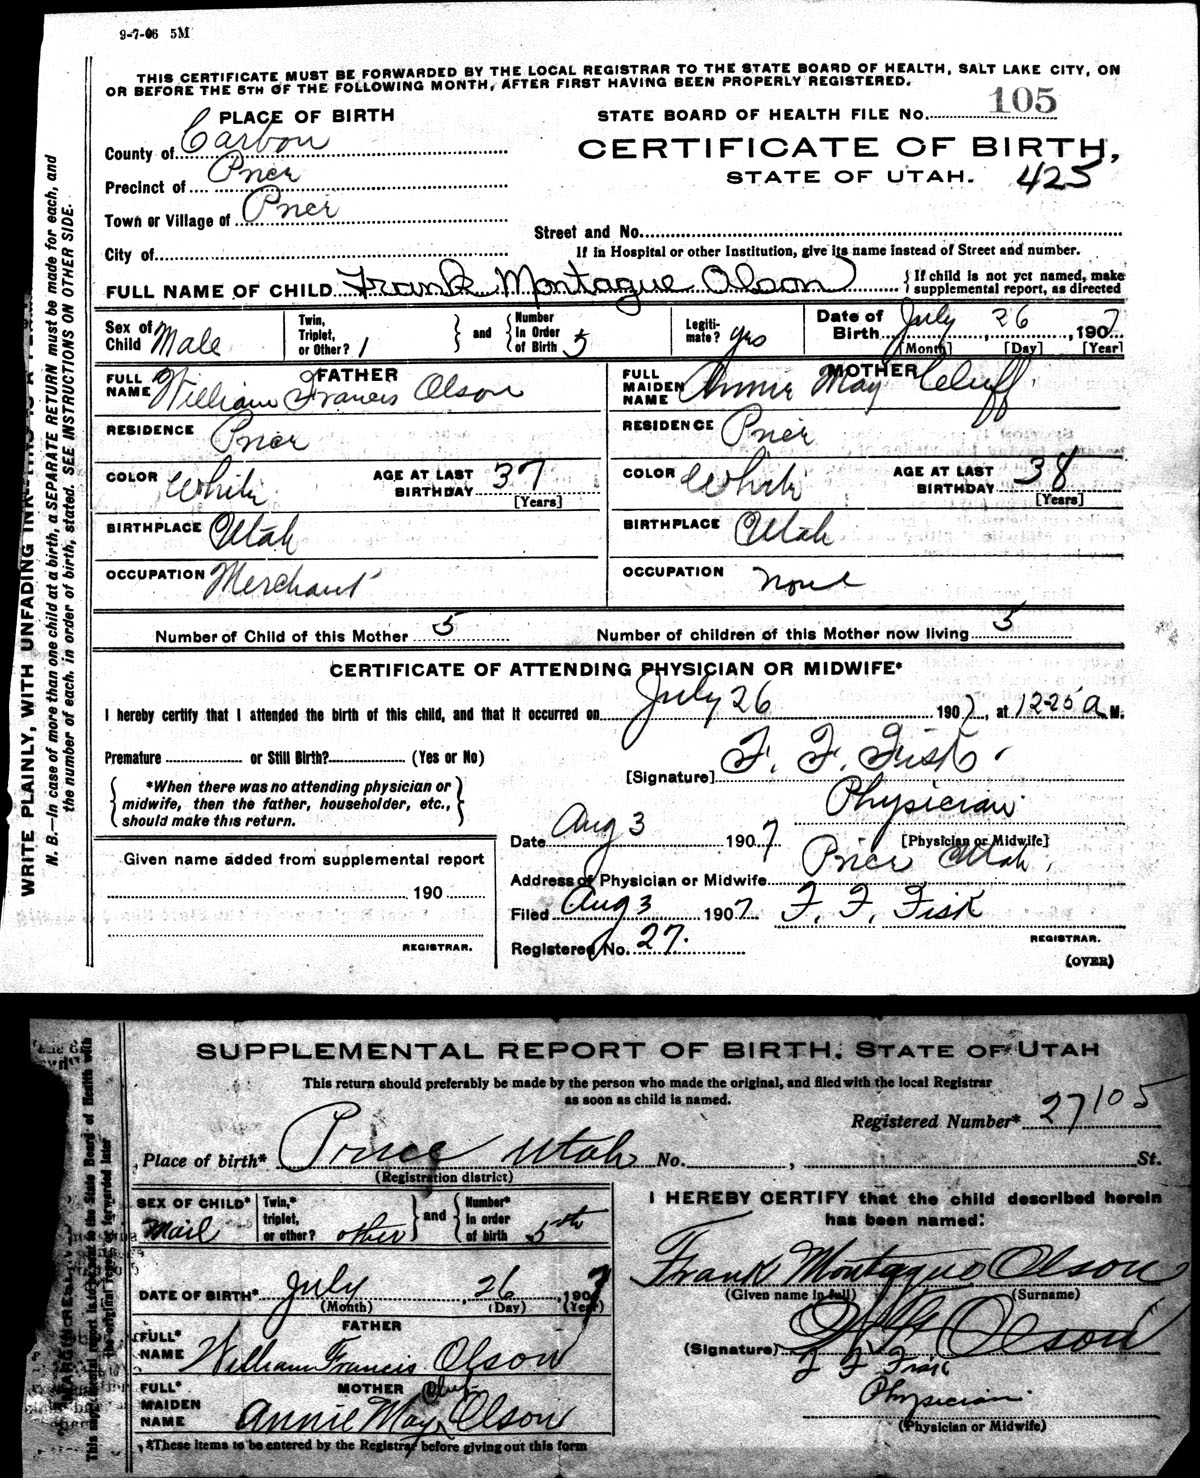 9-7-06 5M
THIS CERTIFICATE MUST BE FORWARDED BY THE LOCAL REGISTRAR TO THE STATE BOARD OF HEALTH, SALT LAKE CITY, ON
OR BEFORE THE 5TH OF THE FOLLOWING MONTH, AFTER FIRST HAVING BEEN PROPERLY REGISTERED.
PLACE OF BIRTH
STATE BOARD OF HEALTH FILE No. 105
County of Carbon
CERTIFICATE OF BIRTH,
Precinct of Price
STATE OF UTAH. 425
Town or Village of Price
Street and No.
City of
If in Hospital or other Institution, give its name instead of Street and number.
FULL NAME OF CHILD Frank Montague Olson { If child is not yet named, make supplemental report, as directed
Sex of Child Male
Twin, Triplet, or Other? 1 } and { Number in Order of Birth 5
Legiti-mate? yes
Date of Birth July 26, 1907
[Month] [Day] [Year]
FATHER
FULL NAME William Francis Olson
MOTHER
FULL MAIDEN NAME Annie May Cluff
RESIDENCE Price
RESIDENCE Price
COLOR White AGE AT LAST BIRTHDAY 37 [Years]
COLOR White AGE AT LAST BIRTHDAY 38 [Years]
BIRTHPLACE Utah
BIRTHPLACE Utah
OCCUPATION Merchant
OCCUPATION None
Number of Child of this Mother 5 Number of children of this Mother now living 5
CERTIFICATE OF ATTENDING PHYSICIAN OR MIDWIFE*
I hereby certify that I attended the birth of this child, and that it occurred on July 26 1907, at 1225 a M.
Premature or Still Birth? (Yes or No)
[Signature] F. F. Fisk
{ *When there was no attending physician or midwife, then the father, householder, etc., should make this return. }
Physician
[Physician or Midwife]
Date Aug 3 1907
Given name added from supplemental report
190
REGISTRAR.
Address of Physician or Midwife Price Utah
Filed Aug 3 1907 F. F. Fisk
REGISTRAR.
Registered No. 27.
(OVER)
N. B.—In case of more than one child at a birth, a SEPARATE RETURN must be made for each, and
the number of each, in order of birth, stated. SEE INSTRUCTIONS ON OTHER SIDE.
WRITE PLAINLY, WITH UNFADING INK
SUPPLEMENTAL REPORT OF BIRTH. STATE OF UTAH
This return should preferably be made by the person who made the original, and filed with the local Registrar
as soon as child is named.
Registered Number* 27 105
Place of birth* Price Utah No. , St.
(Registration district)
SEX OF CHILD* Mail
Twin,* triplet, or other? other } and { Number* in order of birth 5th
DATE OF BIRTH* July 26, 1907
(Month) (Day) (Year)
FATHER
FULL* NAME William Francis Olson
MOTHER
FULL* MAIDEN NAME Annie May Cluff Olson
*These items to be entered by the Registrar before giving out this form
I HEREBY CERTIFY that the child described herein
has been named:
Frank Montague Olson
(Given name in full) (Surname)
(Signature) W F Olson
F F Fisk
Physician
(Physician or Midwife)
This supplemental report is to be sent to the State Board of Health with
the original report or forwarded later